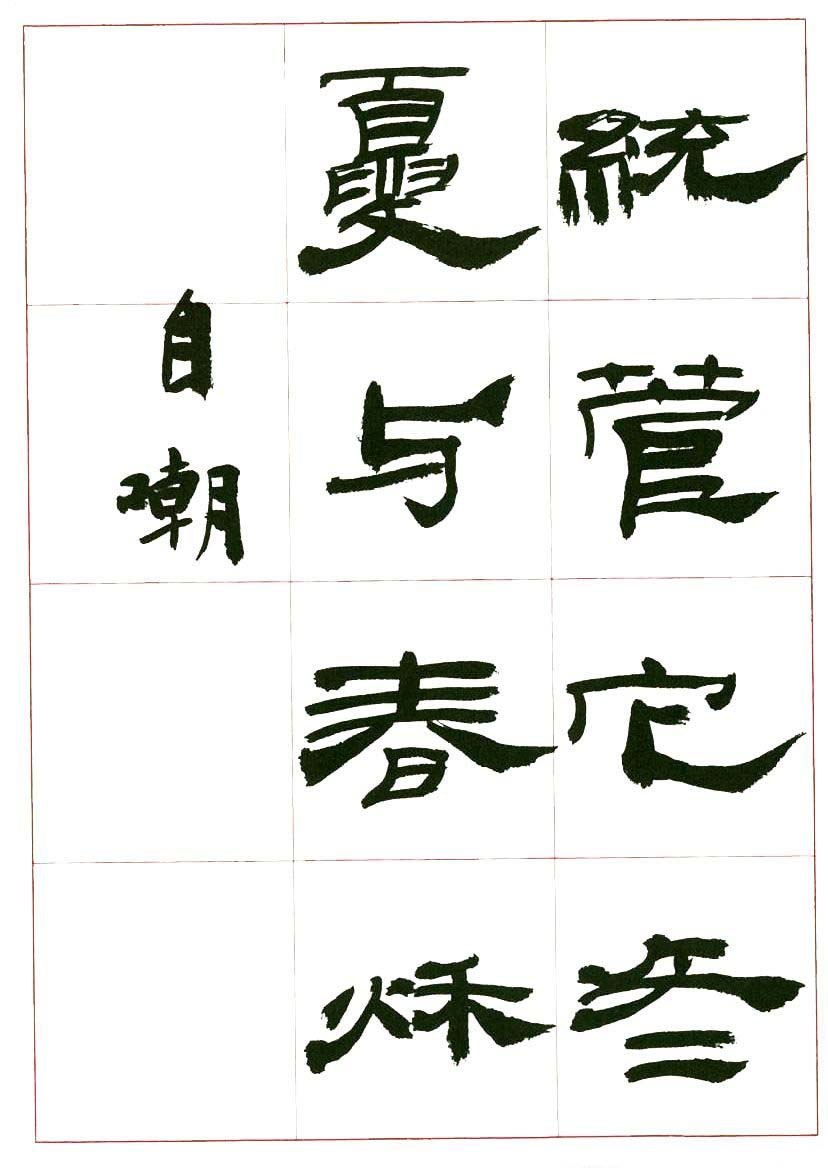 統管它冬
夏与春秌
自嘲